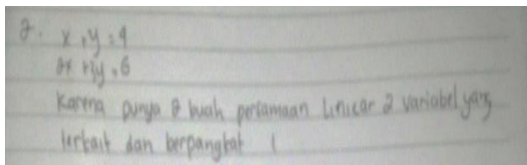 2. x + y = 4
2x + 3y = 6
Karena punya 2 buah persamaan Linear 2 variabel yang
terkait dan berpangkat 1